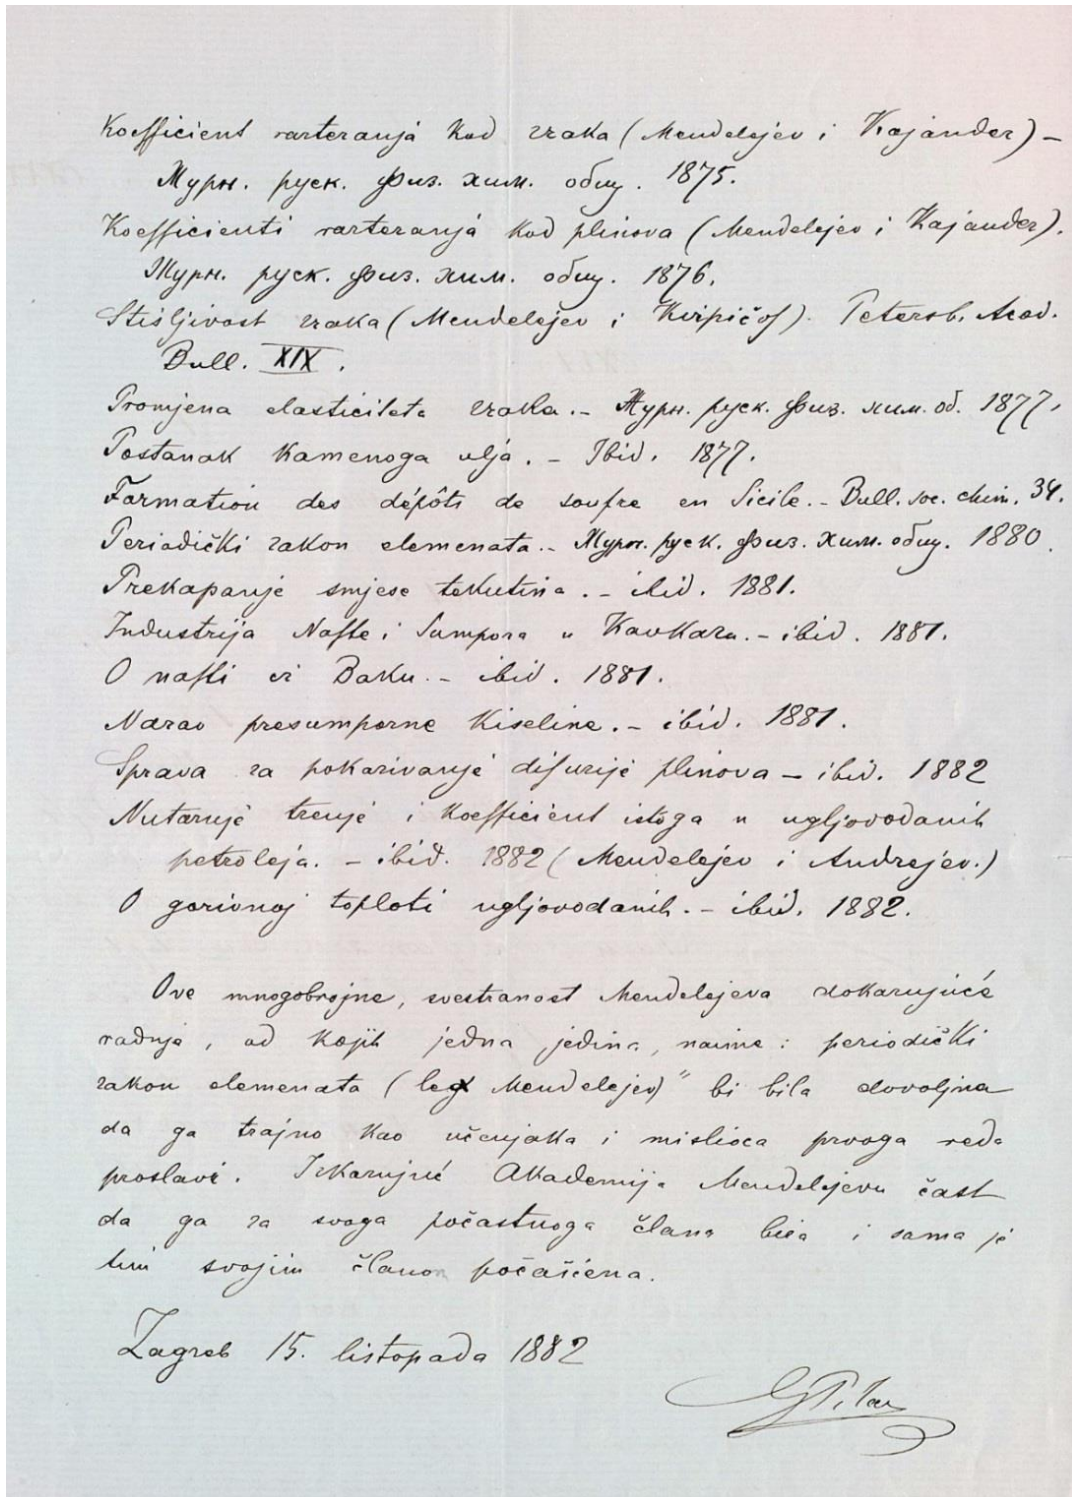 Koefficient rastezanja kod zraka (Mendelejev i Kajander) –
Журн. руск. физ. хим. общ. 1875.
Koefficienti rastezanja kod plinova (Mendelejev i Kajander).
Журн. руск. физ. хим. общ. 1876.
Stisljivost zraka (Mendelejev i Kirpičof). Petersb. Acad.
Bull. XIX.
Promjena elasticiteta zraka. – Журн. руск. физ. хим. об. 1877.
Postanak kamenoga ulja. – Ibid. 1877.
Formation des dépôts de soufre en Sicile. – Bull. soc. chim. 34.
Periodički zakon elemenata. – Журн. руск. физ. хим. общ. 1880.
Prekapanje smjese tekutina. – ibid. 1881.
Industrija Nafte i Sumpora u Kavkazu. – ibid. 1881.
O nafti iz Baku. – ibid. 1881.
Narav presumporne kiseline. – ibid. 1881.
Sprava za pokazivanje difuzije plinova – ibid. 1882
Nutarnje trenje i koefficient istoga u ugljovodanih
petroleja. – ibid. 1882 (Mendelejev i Andrejev.)
O gorivnoj toploti ugljovodanih. – ibid. 1882.
Ove mnogobrojne, svestranost Mendelejeva dokazujuće
radnje, od kojih jedna jedina, naime: periodički
zakon elemenata (lex Mendelejev)" bi bila dovoljna
da ga trajno kao učenjaka i mislioca prvoga reda
proslavi. Izkazujuć Akademija Mendelejevu čast
da ga za svoga počastnoga člana bira i sama je
tim svojim članom počašćena.
Zagreb 15. listopada 1882
G Pilar